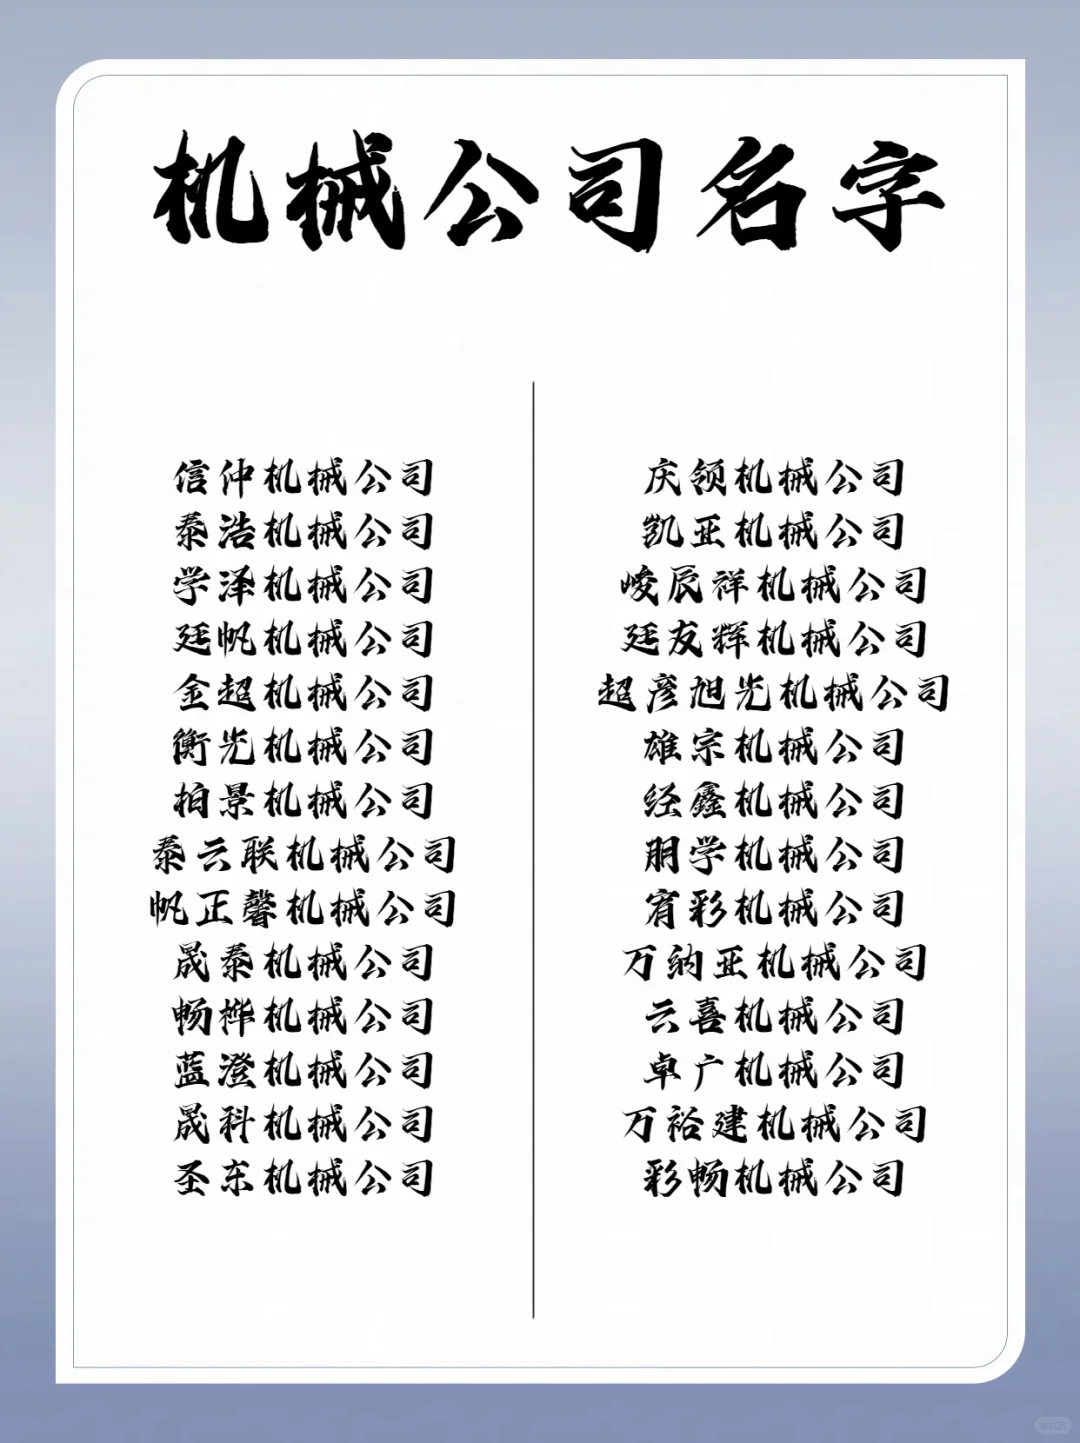 机械公司名字
信仲机械公司
泰浩机械公司
学泽机械公司
廷帆机械公司
金超机械公司
衡光机械公司
柏景机械公司
泰云联机械公司
帆正馨机械公司
晟泰机械公司
畅桦机械公司
蓝澄机械公司
晟科机械公司
圣东机械公司
庆领机械公司
凯亚机械公司
峻辰祥机械公司
廷友辉机械公司
超彦旭光机械公司
雄宗机械公司
经鑫机械公司
朋学机械公司
宥彩机械公司
万纳亚机械公司
云喜机械公司
卓广机械公司
万裕建机械公司
彩畅机械公司